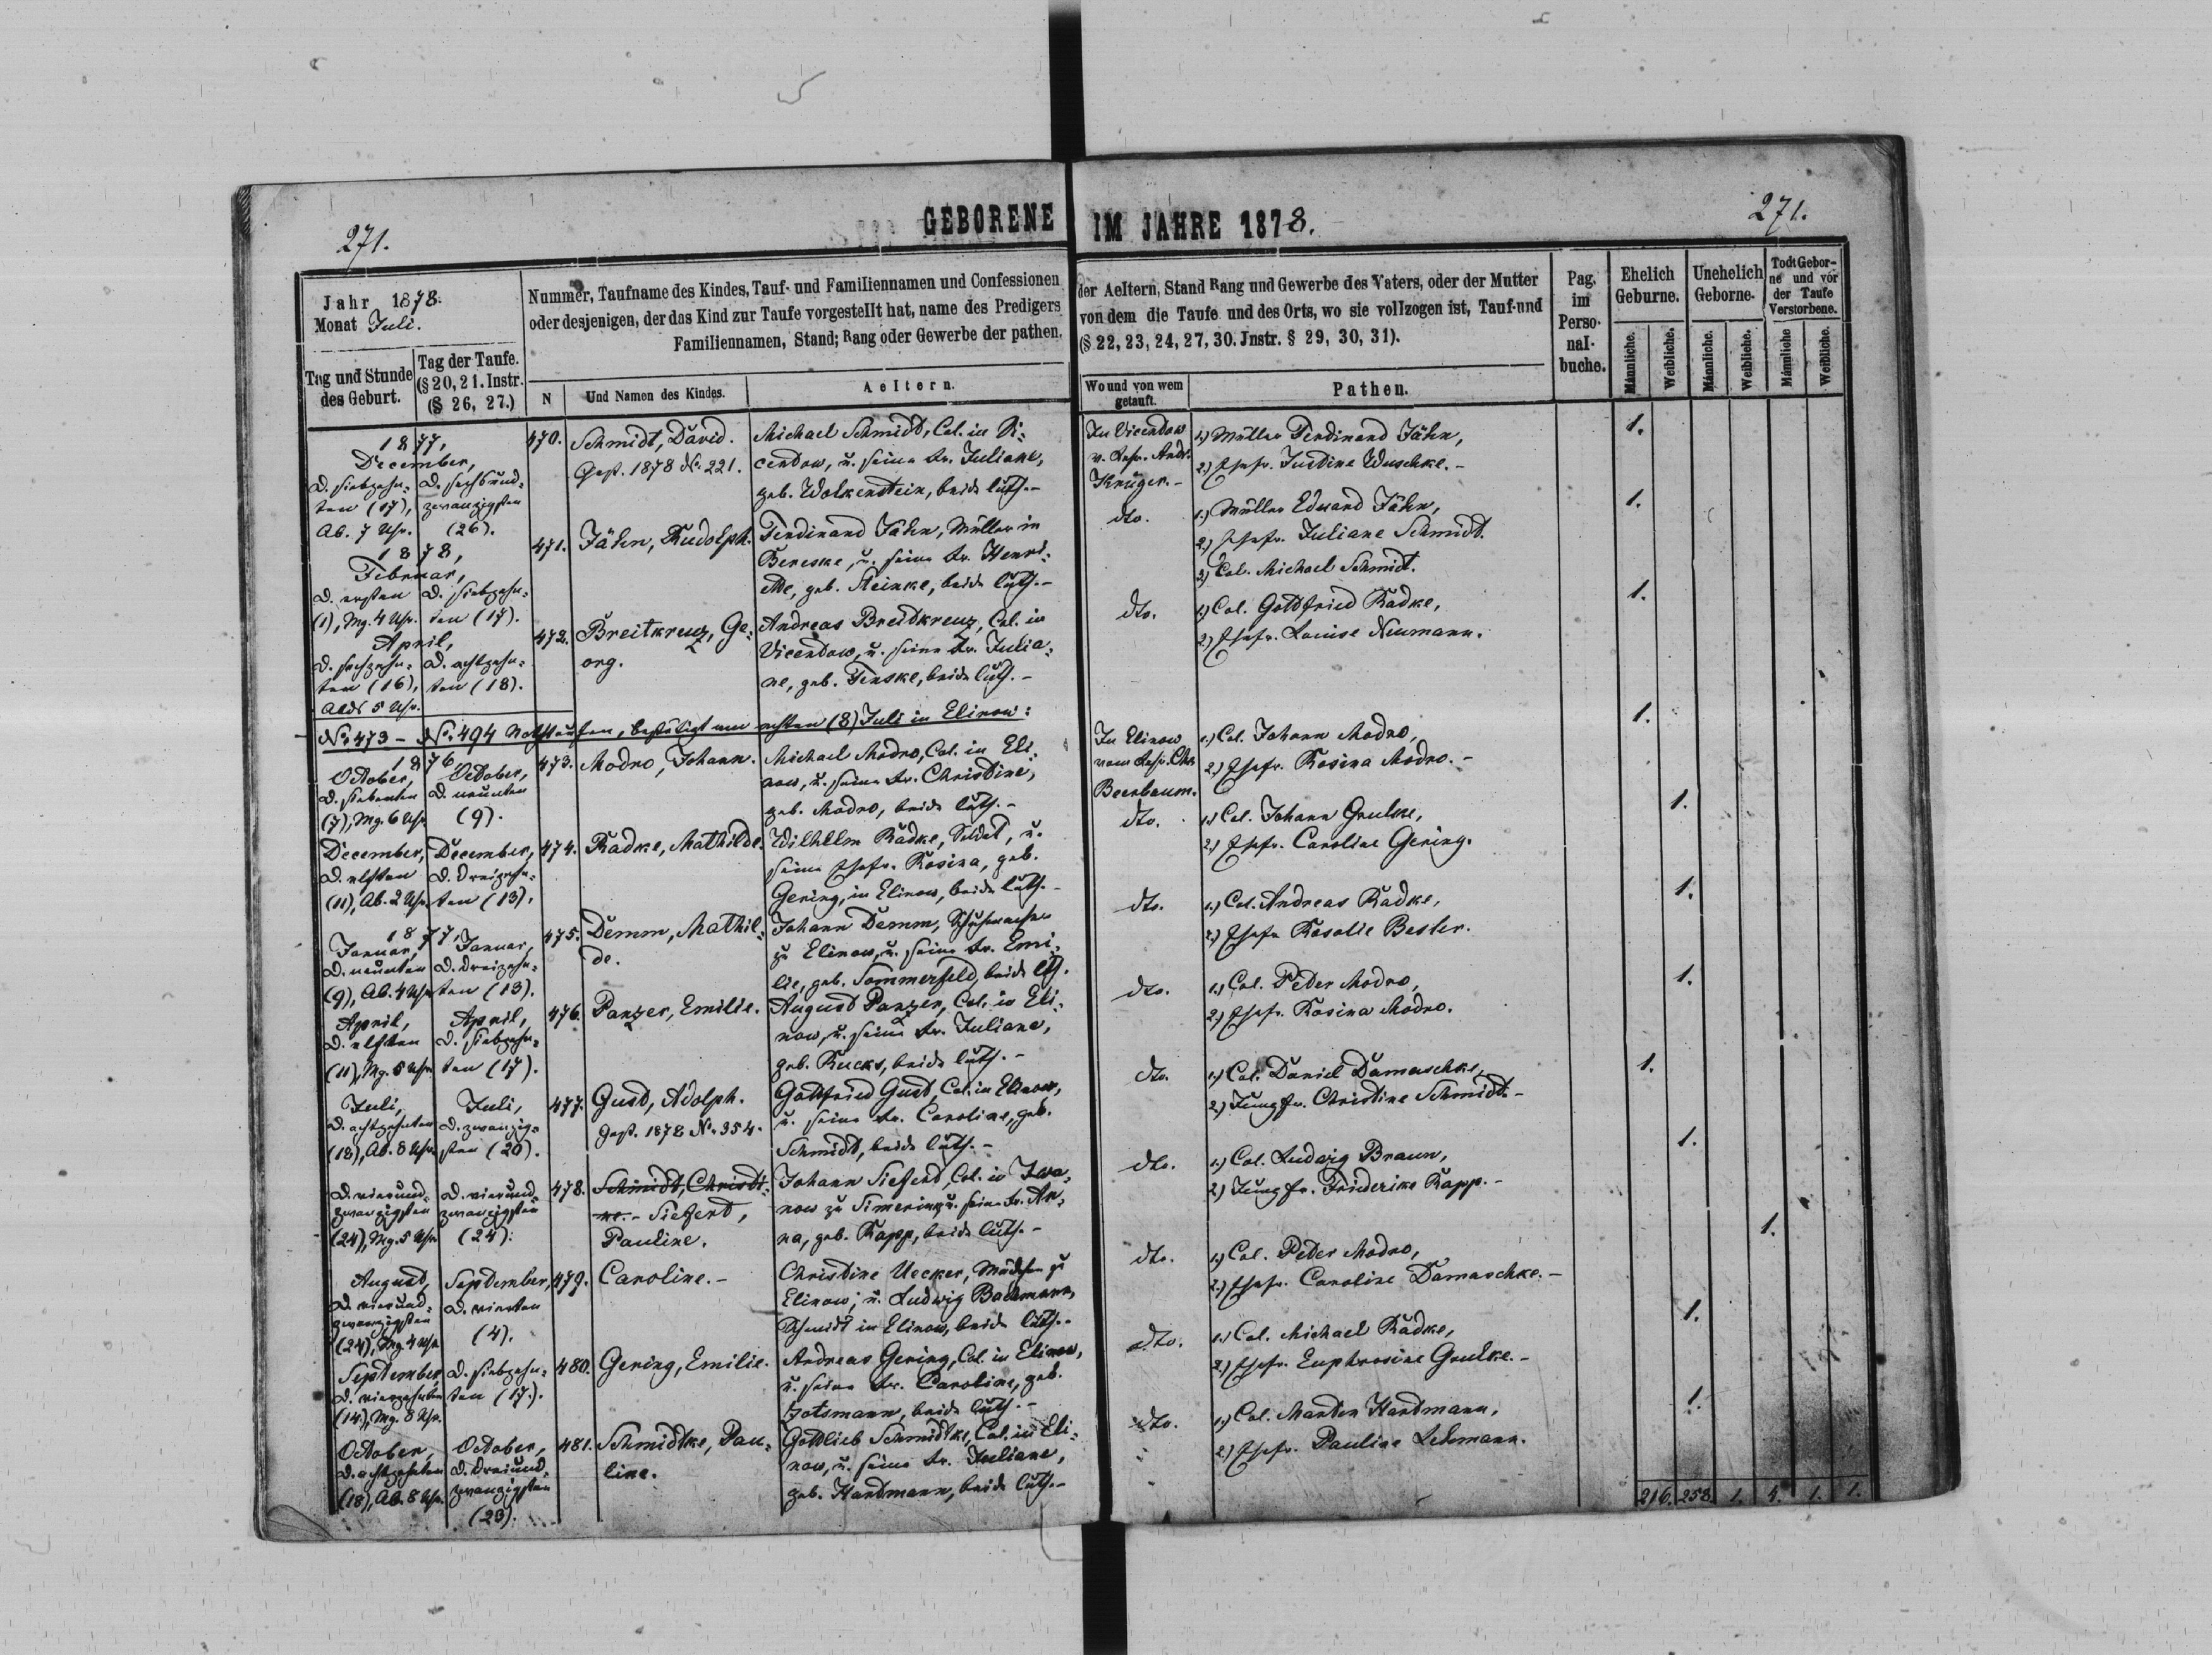 271.
GEBORENE IM JAHRE 1878.
271.
Jahr 1878.
Monat Juli.
Tag und Stunde des Geburt.
Tag der Taufe.
(§ 20, 21. Instr.
(§ 26, 27.)
Nummer, Taufname des Kindes, Tauf- und Familiennamen und Confessionen
oder desjenigen, der das Kind zur Taufe vorgestellt hat, name des Predigers
Familiennamen, Stand; Rang oder Gewerbe der pathen,
N
Und Namen des Kindes.
Aeltern.
der Aeltern, Stand Rang und Gewerbe des Vaters, oder der Mutter
von dem die Taufe und des Orts, wo sie vollzogen ist, Tauf-und
(§ 22, 23, 24, 27, 30. Jnstr. § 29, 30, 31).
Wo und von wem
getauft.
Pathen.
Pag.
im
Perso-
nal-
buche.
Ehelich
Geburne.
Unehelich
Geborne.
Todt Gebor-
ne und vor
der Taufe
Verstorbene.
Männliche.
Weibliche.
Männliche.
Weibliche.
Männliche
Weibliche.
1877,
December,
d. siebzehn-
ten (17),
Ab. 7 Uhr.
d. sechsund-
zwanzigsten
(26).
470.
Schmidt, David.
Gest. 1878 No. 221.
Michael Schmidt, Col. in Vi-
cendow, u. seine Fr. Juliane,
geb. Wolkenstein, beide luth.-
In Vicendow
v. Lehr. Andr.
Krüger.-
1.) Müller Ferdinand Jähn,
2.) Ehefr. Justine Wuschke.-
1.
1878,
Februar,
d. ersten
(1), Mg. 4 Uhr.
d. siebzehn-
ten (17).
471.
Jähn, Rudolph.
Ferdinand Jähn, Müller in
Bereske, u. seine Fr. Henri-
ette, geb. Steinke, beide luth.-
dto.
1.) Müller Eduard Jähn,
2.) Ehefr. Juliane Schmidt.
3.) Col. Michael Schmidt.
1.
April,
d. sechzehn-
ten (16),
Abds 5 Uhr.
d. achtzehn-
ten (18).
472.
Breitkreuz, Ge-
org.
Andreas Breitkreuz, Col. in
Vicendow, u. seine Fr. Julia-
ne, geb. Fenske, beide luth.-
dto.
1.) Col. Gottfried Radke,
2.) Ehefr. Louise Neumann.
1.
No. 473 - No. 494 Nothtaufen, bestätigt am achten (8) Juli in Elinow:
1876,
October,
d. siebenten
(7), Mg. 6 Uhr.
October,
d. neunten
(9).
473.
Modro, Johann.
Michael Modro, Col. in Eli-
now, u. seine Fr. Christine,
geb. Modro, beide luth.-
In Elinow
vom Lehr. Chr.
Beerbaum.
1.) Col. Johann Modro,
2.) Ehefr. Rosina Modro.-
1.
December,
d. elften
(11), Ab. 2 Uhr.
December,
d. dreizehn-
ten (13).
474.
Radke, Mathilde.
Wilhelm Radke, Soldat, u.
seine Ehefr. Rosina, geb.
Gering, in Elinow, beide luth.-
dto.
1.) Col. Johann Grulke,
2.) Ehefr. Caroline Gering.
1.
1877,
Januar,
d. neunten
(9), Ab. 4 Uhr.
Januar,
d. dreizehn-
ten (13).
475.
Demm, Mathil-
de.
Johann Demm, Schuhmacher
zu Elinow, u. seine Fr. Emi-
lie, geb. Sommerfeld, beide lth.
dto.
1.) Col. Andreas Radke,
2.) Ehefr. Rosalie Besler.
1.
April,
d. elften
(11), Mg. 5 Uhr.
April,
d. siebzehn-
ten (17).
476.
Panzer, Emilie.
August Panzer, Col. in Eli-
now, u. seine Fr. Juliane,
geb. Kucks, beide luth.-
dto.
1.) Col. Peter Modro,
2.) Ehefr. Rosina Modro.
1.
Juli,
d. achtzehnten
(18), Ab. 8 Uhr.
Juli,
d. zwanzig-
sten (20).
477.
Gust, Adolph.
Gest. 1878 No. 354.
Gottfried Gust, Col. in Elinow,
u. seine Fr. Caroline, geb.
Schmidt, beide luth.-
dto.
1.) Col. Daniel Damaschke,
2.) Jungfr. Christine Schmidt.-
1.
d. vierund-
zwanzigsten
(24), Mg. 5 Uhr.
d. vierund-
zwanzigsten
(24).
478.
Schmidt, Christi-
ne.- Siefert,
Pauline.
Johann Siefert, Col. in Iwa-
now zu Simerink, u. seine Fr. An-
na, geb. Rapp, beide luth.-
dto.
1.) Col. Ludwig Braun,
2.) Jungfr. Friderike Rapp.-
1.
August,
d. vierund-
zwanzigsten
(24), Mg. 4 Uhr.
September,
d. vierten
(4).
479.
Caroline.-
Christine Uecker, Mädchen zu
Elinow; u. Ludwig Bachmann,
Schmidt in Elinow, beide luth.-
dto.
1.) Col. Peter Modro,
2.) Ehefr. Caroline Damaschke.-
1.
September,
d. vierzehnten
(14), Mg. 8 Uhr.
d. siebzehn-
ten (17.).
480.
Gering, Emilie.
Andreas Gering, Col. in Elinow,
u. seine Fr. Caroline, geb.
beide luth.-
dto.
1.) Col. Michael Radke,
2.) Ehefr. Euphrosine Grulke.-
1.
October,
d. achtzehnten
(18), Ab. 8 Uhr.
October,
d. dreiund-
zwanzigsten
(23).
481.
Schmidtke, Pau-
line.
Gottlieb Schmidtke, Col. in Eli-
now, u. seine Fr. Juliane,
geb. Hartmann, beide luth.-
dto.
1.) Col. Martin Hartmann,
2.) Ehefr. Pauline Lehmann.
1.
216. 258. 1. 4. 1. 1.